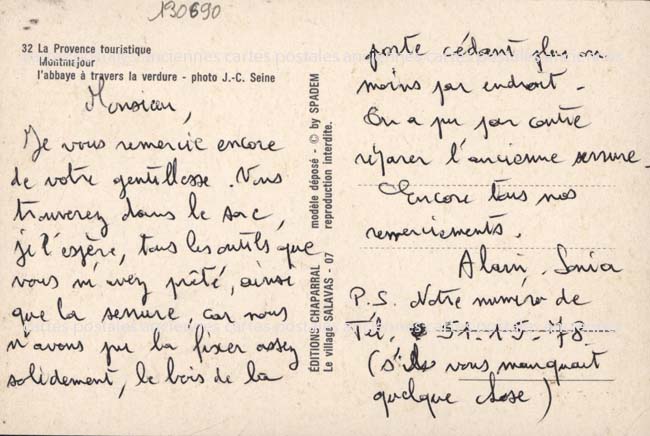 130690
32 La Provence touristique
Montmajour
l'abbaye à travers la verdure - photo J.-C. Seine
Monsieur,
Je vous remercie encore
de votre gentillesse. Vous
trouverez dans le sac,
je l'espère, tous les outils que
vous m'avez prêté, ainsi
que la serrure, car nous
n'avons pu la fixer assez
solidement, le bois de la
ÉDITIONS CHAPARRAL
Le village SALAVAS - 07
modèle déposé - © by SPADEM
reproduction interdite.
porte cédant plus ou
moins par endroit -
On a pu par contre
réparer l'ancienne serrure.
Encore tous nos
remerciements.
Alain, Sonia
P.S. Notre numéro de
Tél. 51-15-78
(s'il vous manquait
quelque chose)